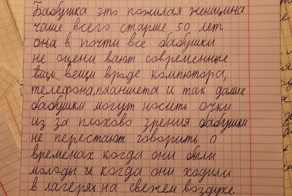 Бабушка это пожилая женщина
чаще всего старше 50 лет
она в почти все бабушки
не оцени вают современные
вещи вроде компютора,
телефона, планшета и так далие
бабушки могут носить очки
из за плохово зрения бабушки
не перестают говорить о
временах когда они были
молоды и когда они ходили
в лагерях на свежом воздухе